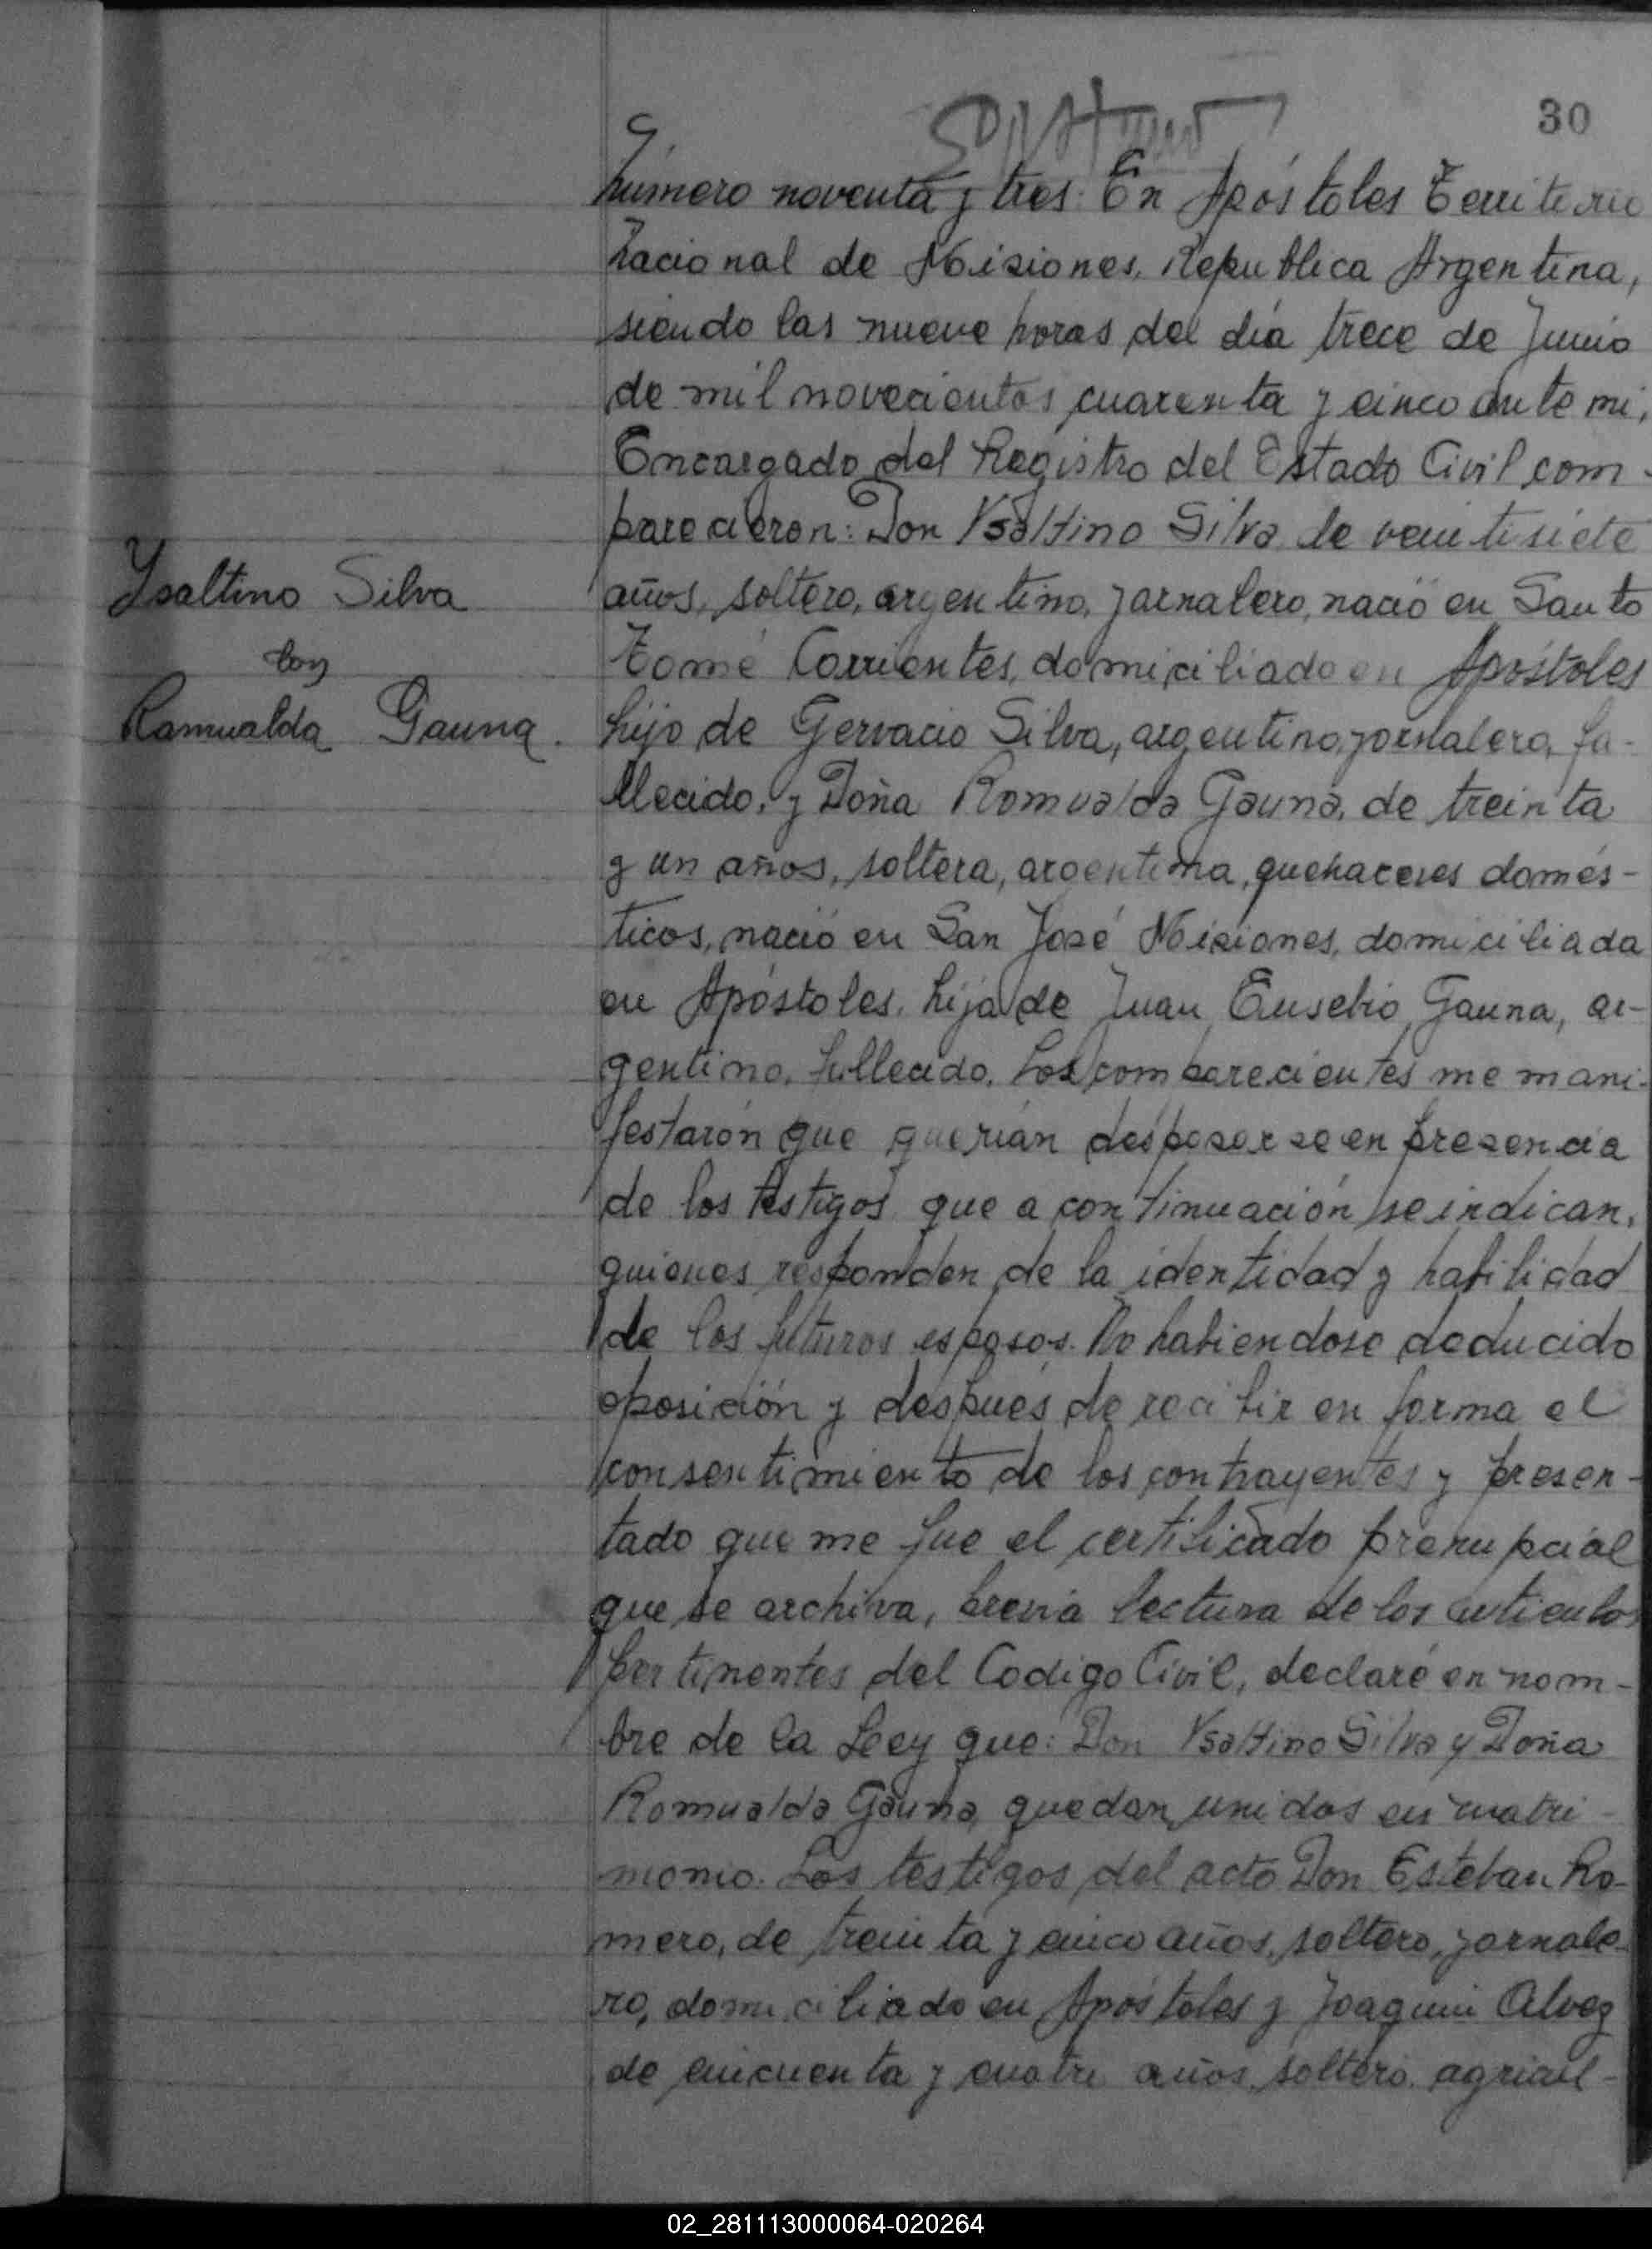 30
Número noventa y tres: En Apóstoles Territorio
Nacional de Misiones, Republica Argentina,
siendo las nueve horas del día trece de Junio
de mil novecientos cuarenta y cinco ante mi,
Encargado del Registro del Estado Civil com-
parecieron: Don Ysaltino Silva de veintisiete
años, soltero, argentino, jornalero, nació en Santo
Tomé Corrientes, domiciliado en Apóstoles
hijo de Gervacio Silva, argentino, jornalero, fa-
llecido, y Doña Romualda Gauna, de treinta
y un años, soltera, argentina, quehaceres domés-
ticos, nació en San José Misiones, domiciliada
en Apóstoles, hija de Juan Eusebio Gauna, ar-
gentino, fallecido. Los comparecientes me mani-
festarón que querían desposarse en presencia
de los testigos que a continuación se indican,
quienes responden de la identidad y habilidad
de los futuros esposos. No habiendose deducido
oposición y después de recibir en forma el
consentimiento de los contrayentes y presen-
tado que me fue el certificado prenupcial
que se archiva, previa lectura de los articulos
pertinentes del Codigo Civil, declaré en nom-
bre de la Leey que: Don Ysaltino Silva y Doña
Romualda Gauna, quedan unidos en matri-
monio. Los testigos del acto Don Esteban Ro-
mero, de treinta y cinco años, soltero, jornale-
ro, domiciliado en Apóstoles y Joaquin Alvez
de cincuenta y cuatro años, soltero, agricul-
Ysaltino Silva
con
Romualda Gauna.
02_281113000064-020264